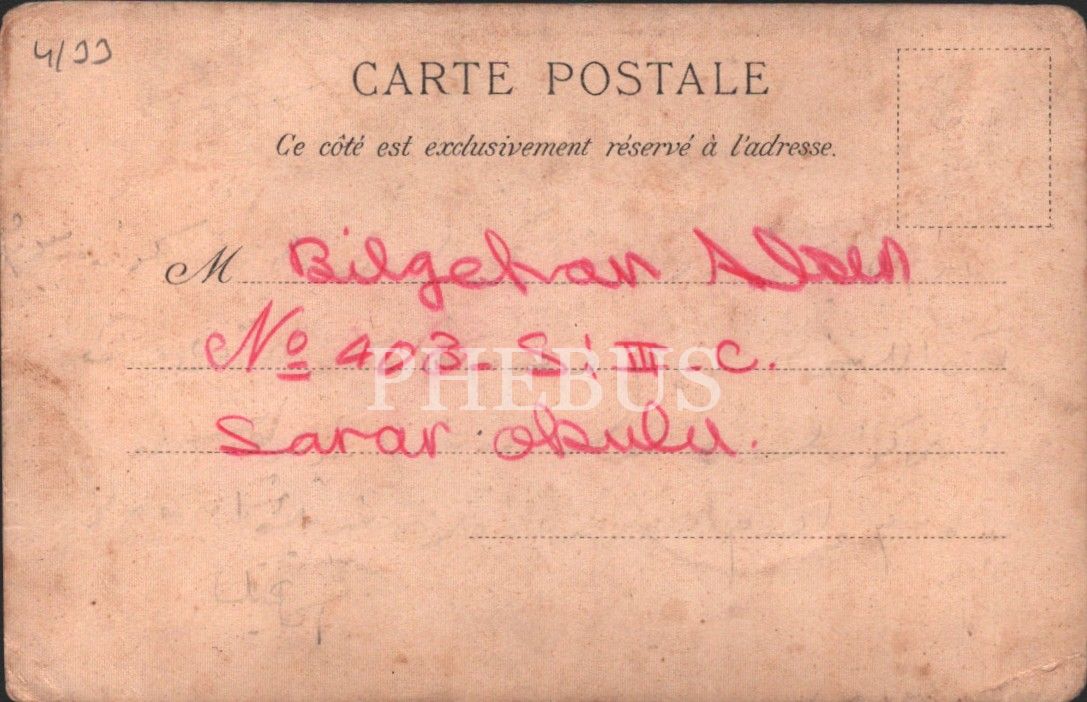 4/99
CARTE POSTALE
Ce côté est exclusivement réservé à l'adresse.
M Bilgehan
No 403- S: III - C.
PHEBUS
Sarar okulu.